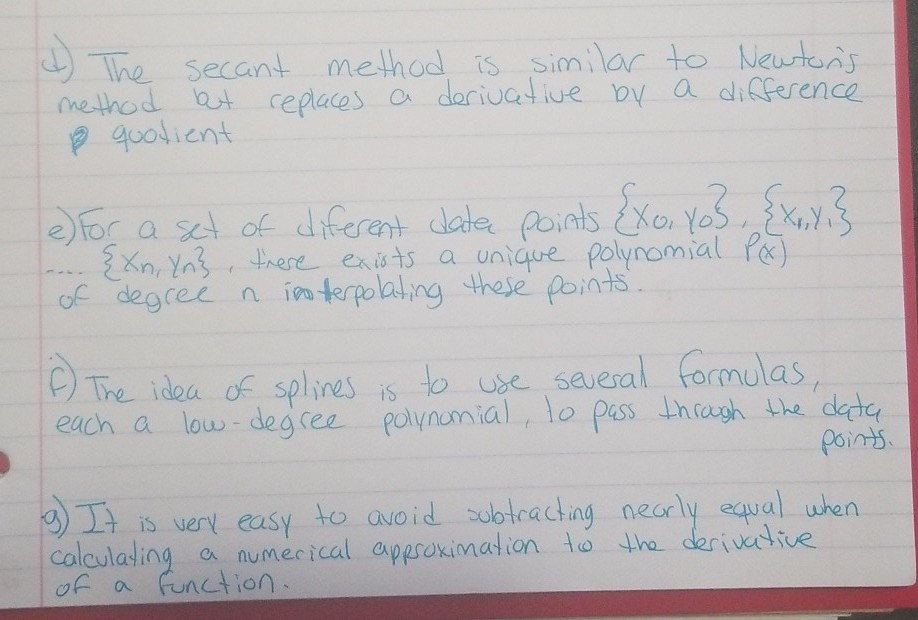 d) The secant method is similar to Newton's
method but replaces a derivative by a difference
quotient
e) For a set of diferent date points {x0, y0}, {x1, y1}
.... {xn, yn}, there exists a unique polynomial P(x)
of degree n interpolating these points.
f) The idea of splines is to use several formulas,
each a low-degree polynomial, to pass through the data
points.
g) It is very easy to avoid subtracting nearly equal when
calculating a numerical approximation to the derivative
of a function.